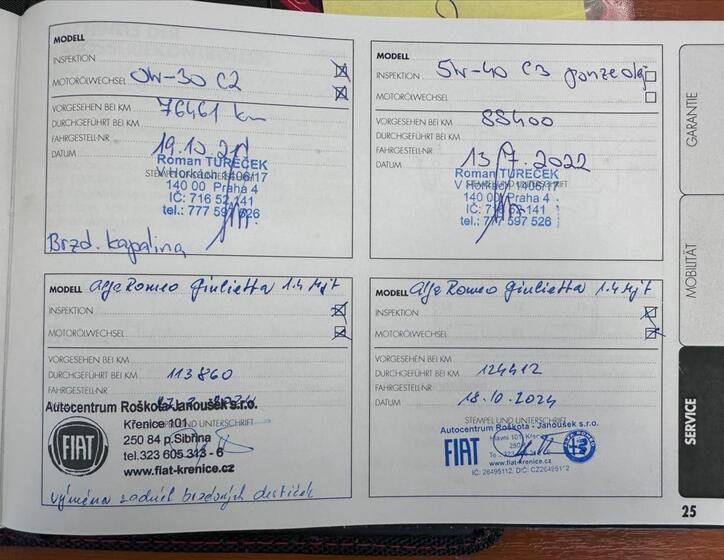 MODELL
INSPEKTION
MOTORÖLWECHSEL 0W-30 C2
VORGESEHEN BEI KM 76461 km
DURCHGEFÜHRT BEI KM
FAHRGESTELL-NR
DATUM 19.10.21
Roman TUREČEK
STEMPEL UND UNTERSCHRIFT
V Horkách 1406/17
140 00 Praha 4
IČ: 716 52 141
tel.: 777 597 526
Brzd. kapalina
MODELL
INSPEKTION 5W-40 C3 pouze olej
MOTORÖLWECHSEL
VORGESEHEN BEI KM 88400
DURCHGEFÜHRT BEI KM
FAHRGESTELL-NR
DATUM 13.7.2022
Roman TUREČEK
STEMPEL UND UNTERSCHRIFT
V Horkách 1406/17
140 00 Praha 4
IČ: 716 52 141
tel.: 777 597 526
MODELL Alfa Romeo Giulietta 1.4 Mjt
INSPEKTION
MOTORÖLWECHSEL
VORGESEHEN BEI KM
DURCHGEFÜHRT BEI KM 113860
FAHRGESTELL-NR
Autocentrum Roškota-Janoušek s.r.o.
FIAT
Křenice 101
250 84 p.Sibřina
tel.323 605 313 - 6
www.fiat-krenice.cz
výměna zadních brzdových destiček
MODELL Alfa Romeo Giulietta 1.4 Mjt
INSPEKTION
MOTORÖLWECHSEL
VORGESEHEN BEI KM
DURCHGEFÜHRT BEI KM 124412
FAHRGESTELL-NR
DATUM 18.10.2024
STEMPEL UND UNTERSCHRIFT
Autocentrum Roškota - Janoušek s.r.o.
FIAT
www.fiat-krenice.cz
GARANTIE
MOBILITÄT
SERVICE
25